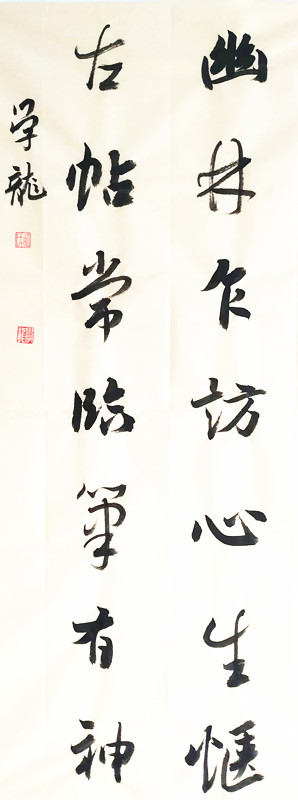 幽林乍訪心生惬
古帖常臨筆有神
学龍